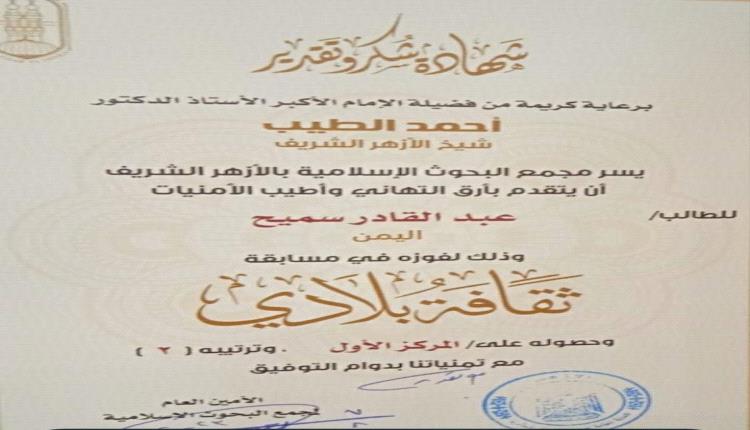 شهادة شكر وتقدير
برعاية كريمة من فضيلة الإمام الأكبر الأستاذ الدكتور
أحمد الطيب
شيخ الأزهر الشريف
يسر مجمع البحوث الإسلامية بالأزهر الشريف
أن يتقدم بأرق التهاني وأطيب الأمنيات
للطالب/ عبد القادر سميح
اليمن
وذلك لفوزه في مسابقة
ثقافة بلادي
وحصوله على/ المركز الأول . وترتيبه ( ٢ )
مع تمنياتنا بدوام التوفيق
الأمين العام
لمجمع البحوث الإسلامية